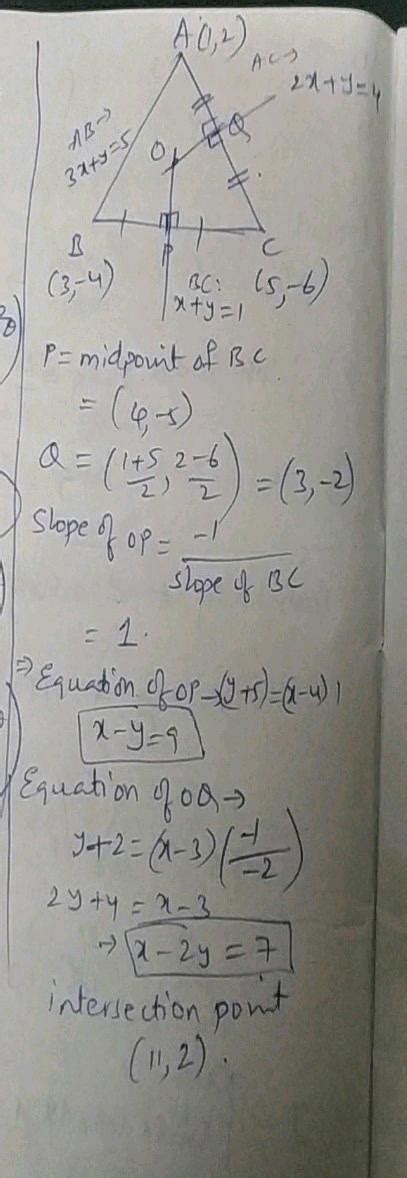 A(1,2)
AC→
2x+y=4
AB→
3x+y=5
O
Q
B
P
C
(3,-4)
BC:
x+y=1
(5,-6)
P = midpoint of BC
= (4,-5)
Q = (1+5/2, 2-6/2) = (3,-2)
Slope of OP = -1/slope of BC
= 1.
⇒ Equation of OP→(y+5)=(x-4)1
x-y=9
Equation of OQ→
y+2=(x-3)(-1/-2)
2y+4=x-3
→ x-2y=7
intersection point
(11,2).